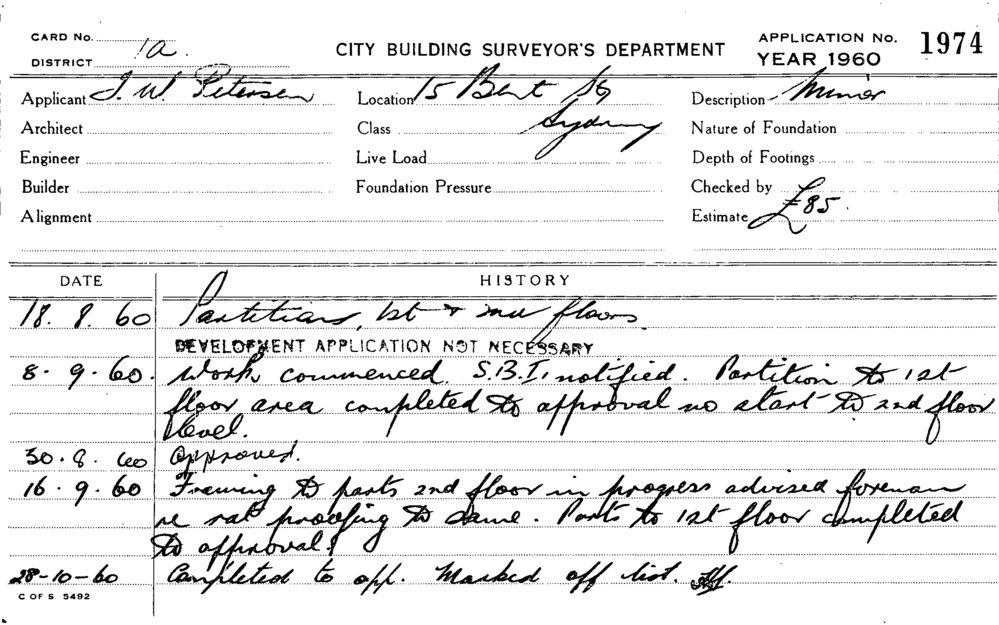 CARD No. 1a
DISTRICT
CITY BUILDING SURVEYOR'S DEPARTMENT
APPLICATION No. 1974
YEAR 1960
Applicant J. W. Petersen
Location 15 Bent St
Sydney
Description Minor
Architect
Class
Nature of Foundation
Engineer
Live Load
Depth of Footings
Builder
Foundation Pressure
Checked by
Alignment
Estimate £85.
DATE HISTORY
18. 8. 60 Partitions, 1st & 2nd floors.
DEVELOPMENT APPLICATION NOT NECESSARY
8. 9. 60. Work commenced. S.B.I. notified. Partition to 1st
floor area completed to approval no start to 2nd floor
level.
30. 8. 60 Approved.
16. 9. 60 Framing to parts 2nd floor in progress advised foreman
re rat proofing to same. Parts to 1st floor completed
to approval.
28-10-60 Completed to app. Marked off list.
C OF S 5492